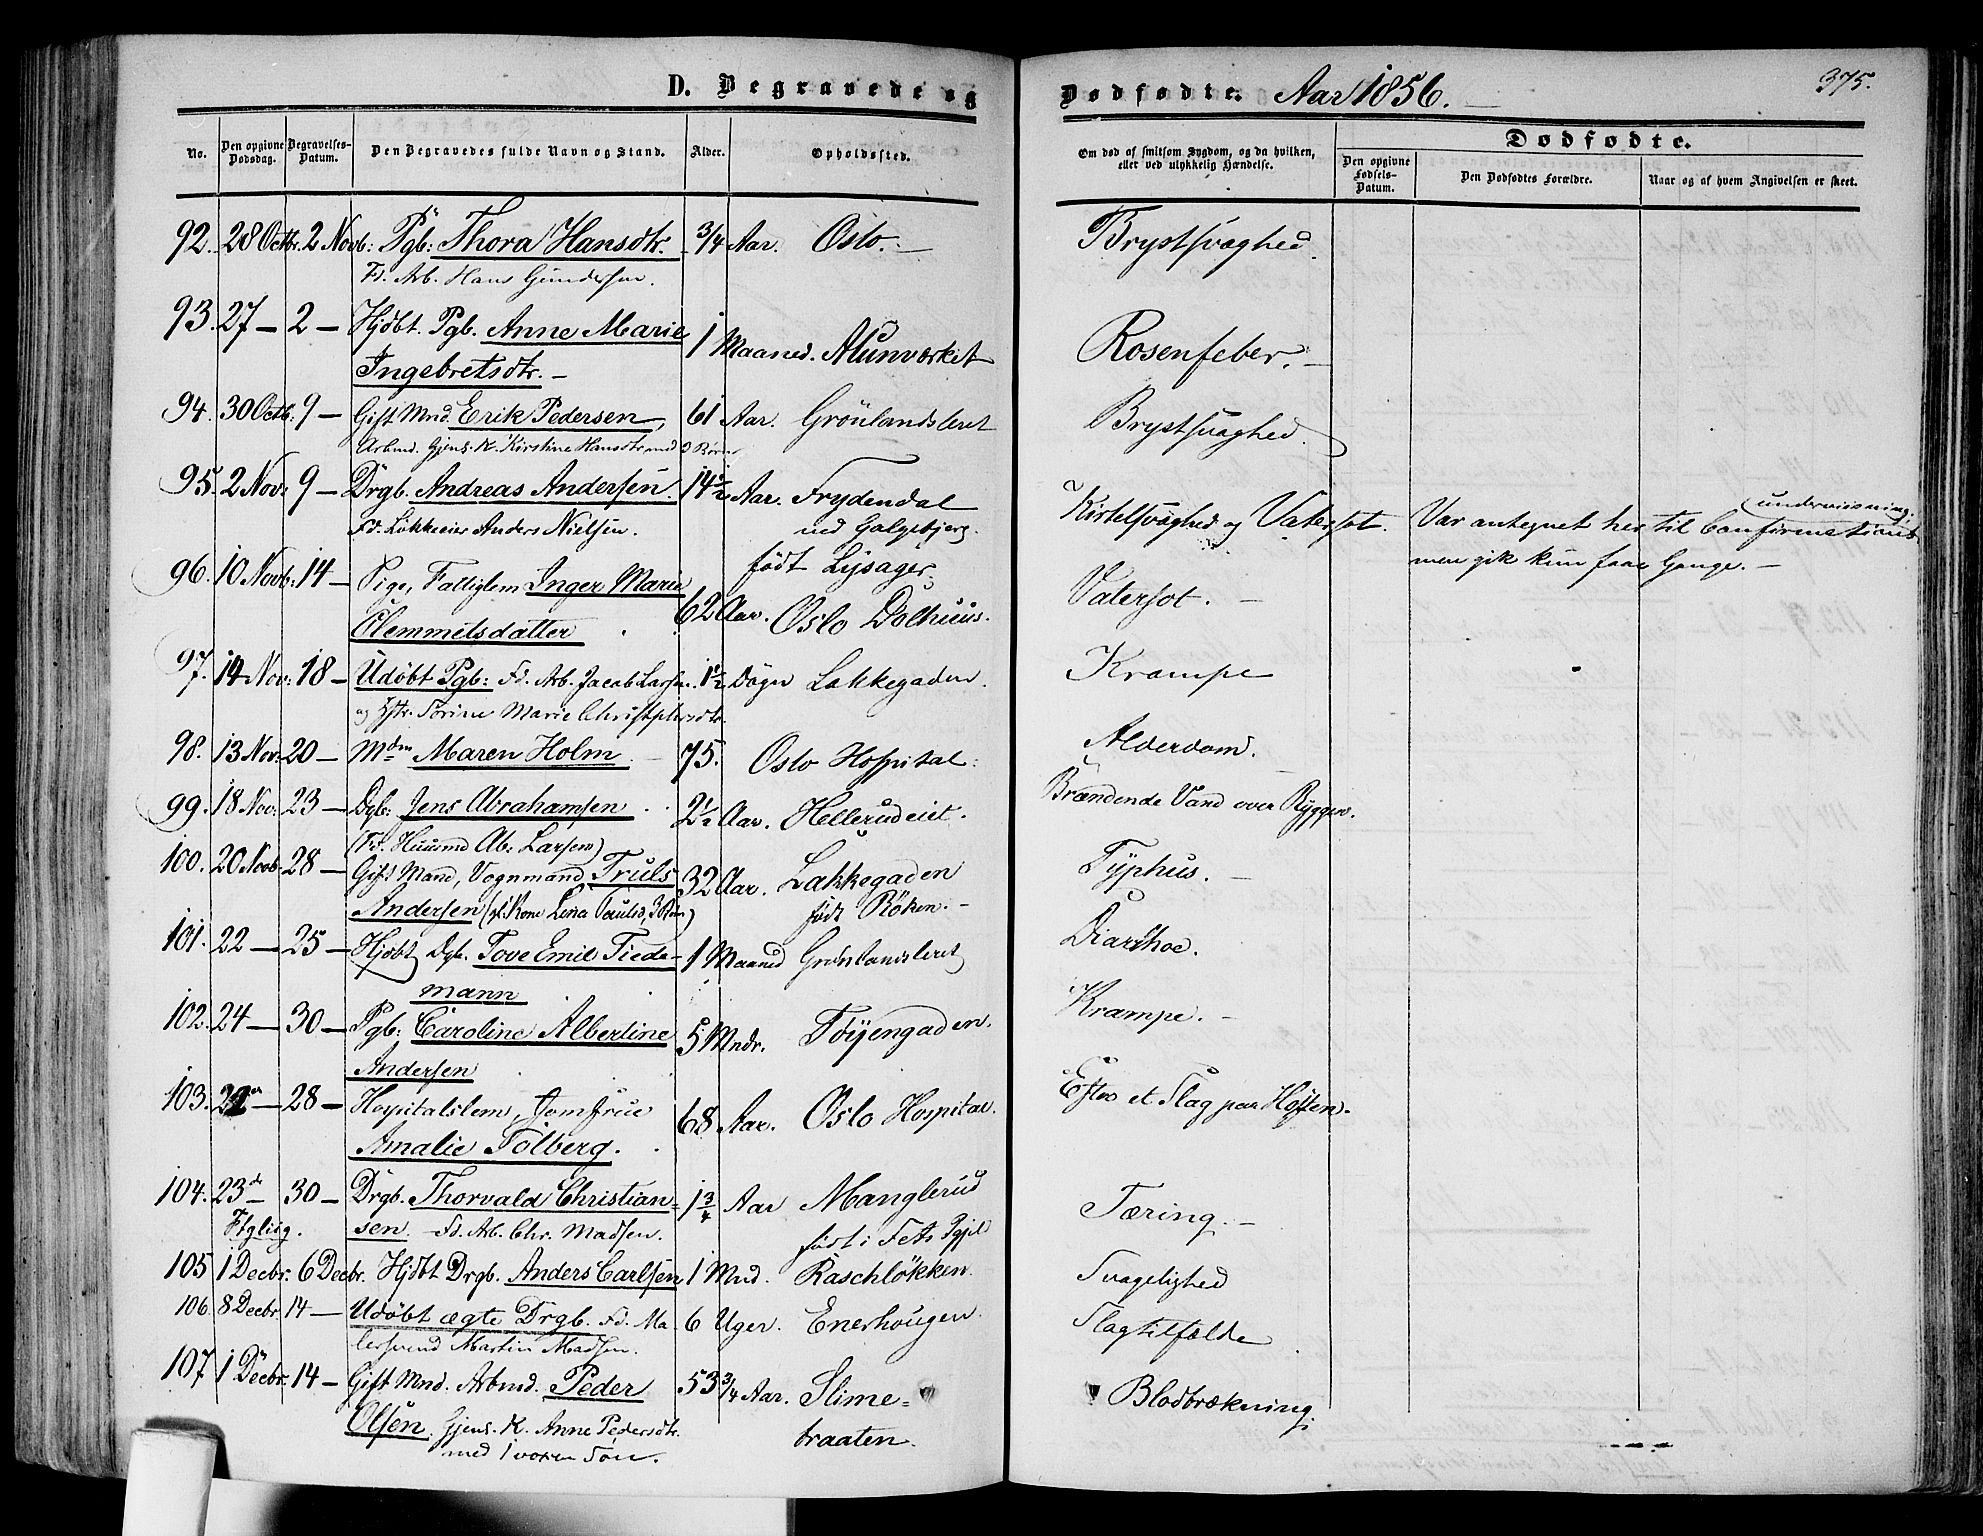 D. Begravede og Dødfødte. Aar 1856. 375.
No. Den opgivne Dødsdag. Begravelses-Datum. Den Begravedes fulde Navn og Stand. Alder. Opholdssted. Om død af smitsom Sygdom, og da hvilken, eller ved ulykkelig Hændelse. Dødfødte. Den opgivne Fødsels-Datum. Den Dødfødtes Forældre. Naar og af hvem Angivelsen er skeet.
92. 28 Octbr. 2 Novb: Pgb: Thora Hansdtr. 3/4 Aar. Oslo. Brystsvaghed.
Fd. Arb. Hans Gundersen.
93. 27 — 2 — Hjdbt. Pgb. Anne Marie 1 Maaned. Alunværket Rosenfeber.
Ingebretsdtr. —
94. 30 Octb. 9 — Gift Mnd. Erik Pedersen, 61 Aar. Grönlandsleret Brystsvaghed.
Arbmd. Gjens. K. Kirstine Hansdtr med 3 Börn
95. 2 Nov: 9 — Drgb. Andreas Andersen. 14 1/2 Aar. Frydendal Kirtelsvaghed og Vatersot. Var antegnet her til Confirmations underviisning,
Fd. Løkkeeier Anders Nielsen. ved Galgebjerg. men gik kun faae Gange. —
96. 10 Novb: 14 — Pige, Fattiglem Inger Marie 62 Aar. født Lysager, Vatersot. —
Clemmetsdatter Oslo Dolhuus.
97. 14 Nov: 18 — Udøbt Pgb: Fd. Arb. Jacob Larsen 1 1/2 Døgn Lakkegaden. Krampe
og Hstr. Sorine Marie Christophersdtr.
98. 13 Nov: 20 — Mdm Maren Holm. 75. Oslo Hospital. Alderdom.
99. 18 Nov. 23 — Dgb: Jens Abrahamsen 2 1/2 Aar. Hellerudeiet. Brændende Vand over Ryggen.
(Fd. Huusmd Ab: Larsen)
100. 20 Novb. 28 — Gift Mand, Vognmand Truls 32 Aar. Lakkegaden Typhus. —
Andersen (gl. Kone Lena Pauls, 3 Børn) født Röken. —
101. 22 — 25 — Hjdbt Dgb. Tove Emil Tiede- 1 Maaned Grønlandsleret Diarrhoe.
mann
102. 24 — 30 — Pgb: Caroline Albertine 5 Mndr. Töyengaden. Krampe. —
Andersen
103. 28 — Hospitalslem, Jomfrue 68 Aar. Oslo Hospital. Efter et Slag paa Hoften.
Amalie Tolberg.
104. 23de — 30 — Drgb. Thorvald Christian- 1 3/4 Aar Manglerud Tæring. —
sen. Fd. Arb. Chr. Madsen. født i Fets Pgjd
105 1 Decbr. 6 Decbr. Hjdbt Drgb. Anders Carlsen 1 Mnd. Raschlökken. Svagelighed
106. 8 Decbr. 14 — Udøbt ægte Drgb. Fd. Ma- 6 Uger. Enerhougen. Slagtilfælde
lersvend Martin Madsen.
107. 1 Decbr. 14 — Gift Mnd. Arbmd. Peder 53 3/4 Aar. Slime- Blodbrækning.
Olsen. Gjens. K. Anne Pedersdtr. braaten.
med 1 voxen Søn.